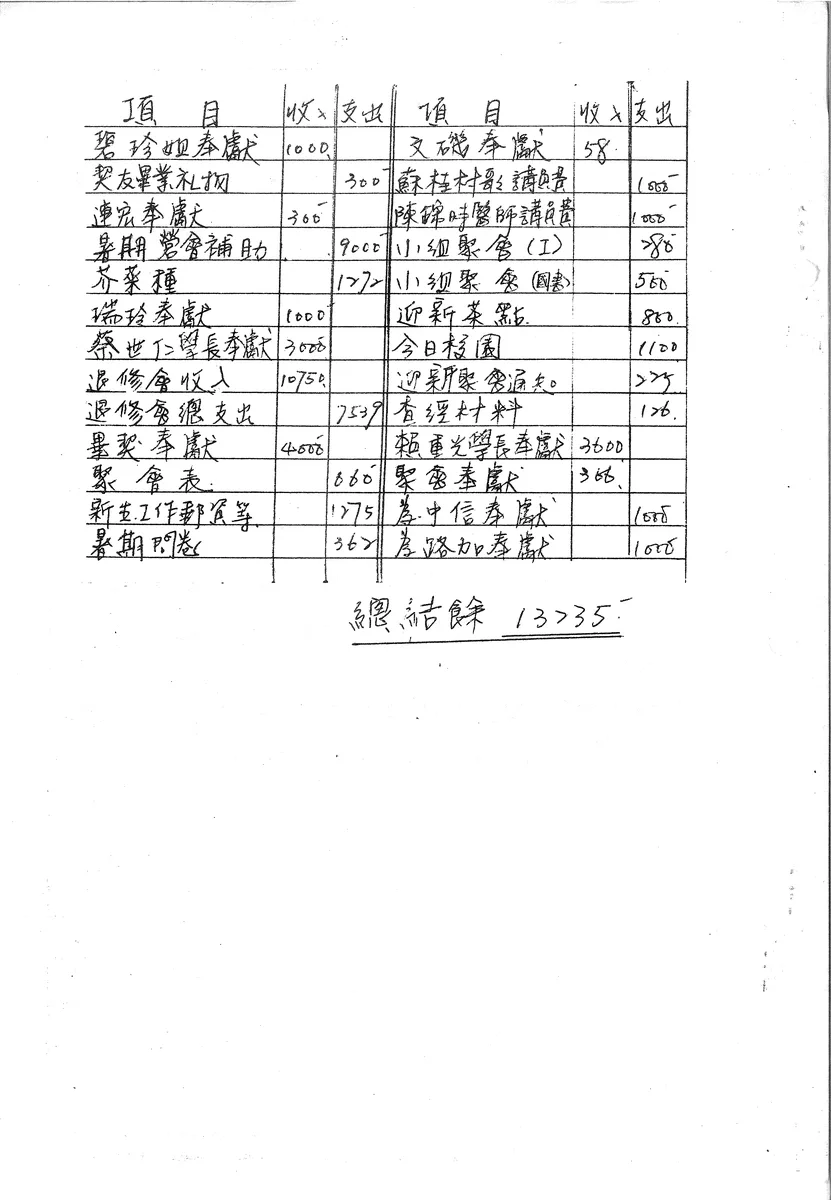 項目 收入 支出 項目 收入 支出
碧珍姐奉獻 1000. 文磯奉獻 58.
契友畢業礼物 300 蘇桂村 講員費 1000
連宏奉獻 300 陳錦時醫師講員費 1000
暑期營會補助 9000 小組聚會(I) 280
芥菜種 1272 小組聚會(圖書) 500
瑞玲奉獻 1000 迎新茶點. 800.
蔡世仁學長奉獻 3000 今日校園 1100
退修會收入 10750. 迎新聚會通知 225
退修會總支出 7539 查經材料 126.
畢契奉獻 4000 賴重光學長奉獻 3600
聚會表. 660 聚會奉獻 300.
新生工作郵資等. 1275 為中信奉獻 1000
暑期問卷 362 為路加奉獻 1000
總結餘 13235